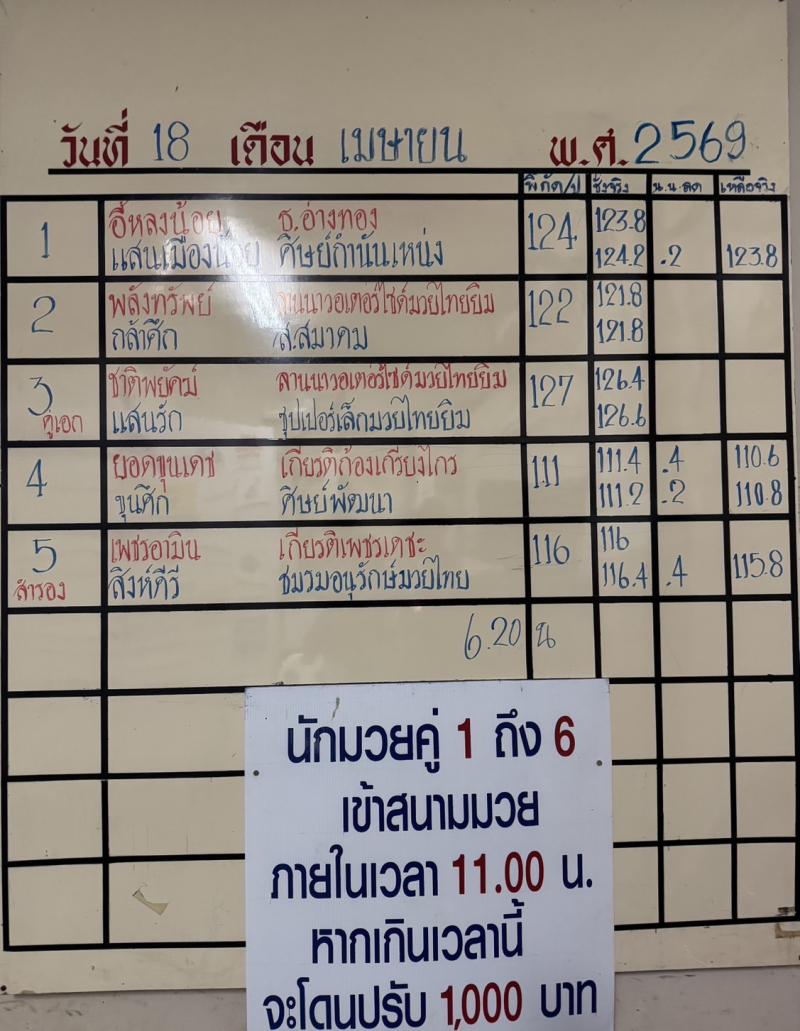 วันที่ 18 เดือน เมษายน พ.ศ. 2569
พิกัด/ป ชั่งจริง น.น.ลด เหลือจริง
1 อี้หลงน้อย ธ.อ่างทอง 124 123.8
แสนเมืองน้อย ศิษย์กำนันเหน่ง 124.2 .2 123.8
2 พลังทรัพย์ ลานนาวอเตอร์ไซด์มวยไทยยิม 122 121.8
กล้าศึก ส.สมาคม 121.8
3 ชาติพยัคฆ์ ลานนาวอเตอร์ไซด์มวยไทยยิม 127 126.4
คู่เอก แสนรัก ซุปเปอร์เล็กมวยไทยยิม 126.6
4 ยอดขุนเดช เกียรติก้องเกรียงไกร 111 111.4 .4 110.6
ขุนศึก ศิษย์พัฒนา 111.2 .2 110.8
5 เพชรอามิน เกียรติเพชรเดชะ 116 116
สำรอง สิงห์คีรี ชมรมอนุรักษ์มวยไทย 116.4 .4 115.8
6.20 น
นักมวยคู่ 1 ถึง 6
เข้าสนามมวย
ภายในเวลา 11.00 น.
หากเกินเวลานี้
จะโดนปรับ 1,000 บาท